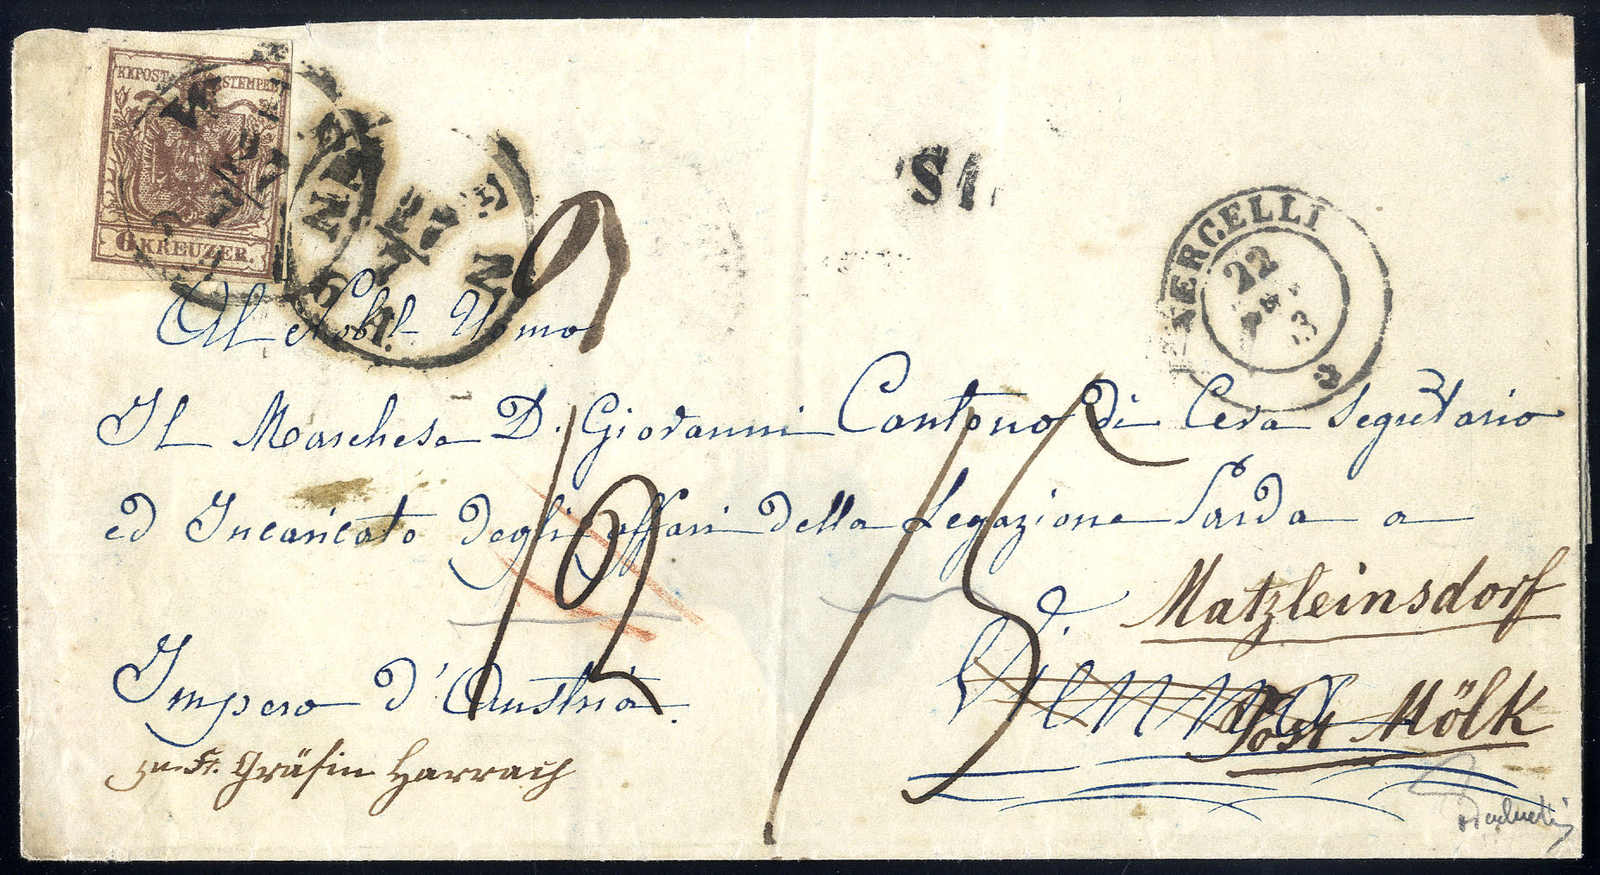 KKPOST STEMPEL
6 KREUZER.
WIEN
SI
VERCELLI
22
Al Nobil Uomo
Il Marchese D. Giovanni Cantono di Ceva Segretario
ed Incaricato degli affari della Legazione Sarda a
Matzleinsdorf
Vienna
Impero d'Austria.
Post Mölk
zu Fr. Gräfin Harrach